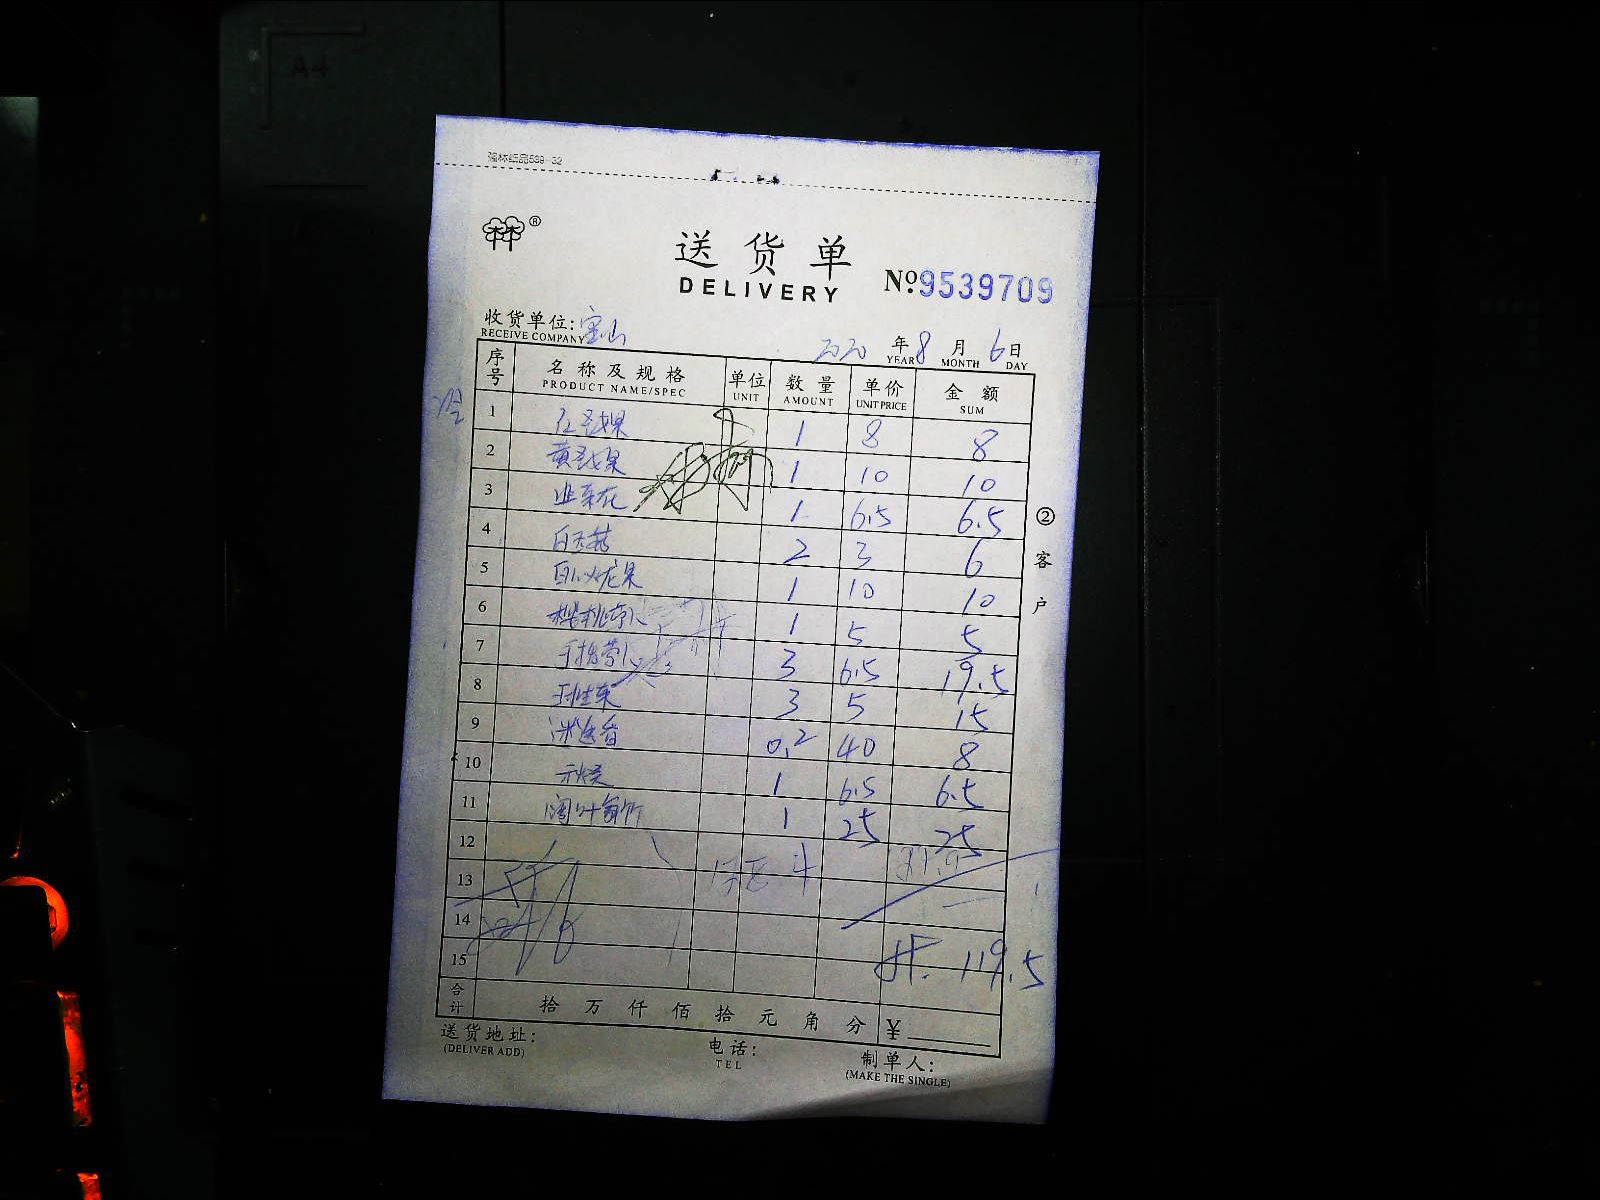 A4
强林纸品539-32
®
送货单
DELIVERY
№:9539709
收货单位:宝山
RECEIVE COMPANY
2020 年 8 月 6 日
YEAR MONTH DAY
序号 名称及规格 单位 数量 单价 金额
PRODUCT NAME/SPEC UNIT AMOUNT UNIT PRICE SUM
1 红圣女果 1 8 8
2 黄圣女果 1 10 10
3 韭菜花 1 6.5 6.5
4 白玉菇 2 3 6
5 白心火龙果 1 10 10
6 樱桃萝卜 1 5 5
7 手指萝卜 3 6.5 19.5
8 3 5 15
9 迷迭香 0.2 40 8
10 1 6.5 6.5
11 阔叶箬竹 1 25 25
12
13
14
15 共 119.5
合计 拾 万 仟 佰 拾 元 角 分 ¥
② 客户
送货地址: 电话: 制单人:
(DELIVER ADD) TEL (MAKE THE SINGLE)